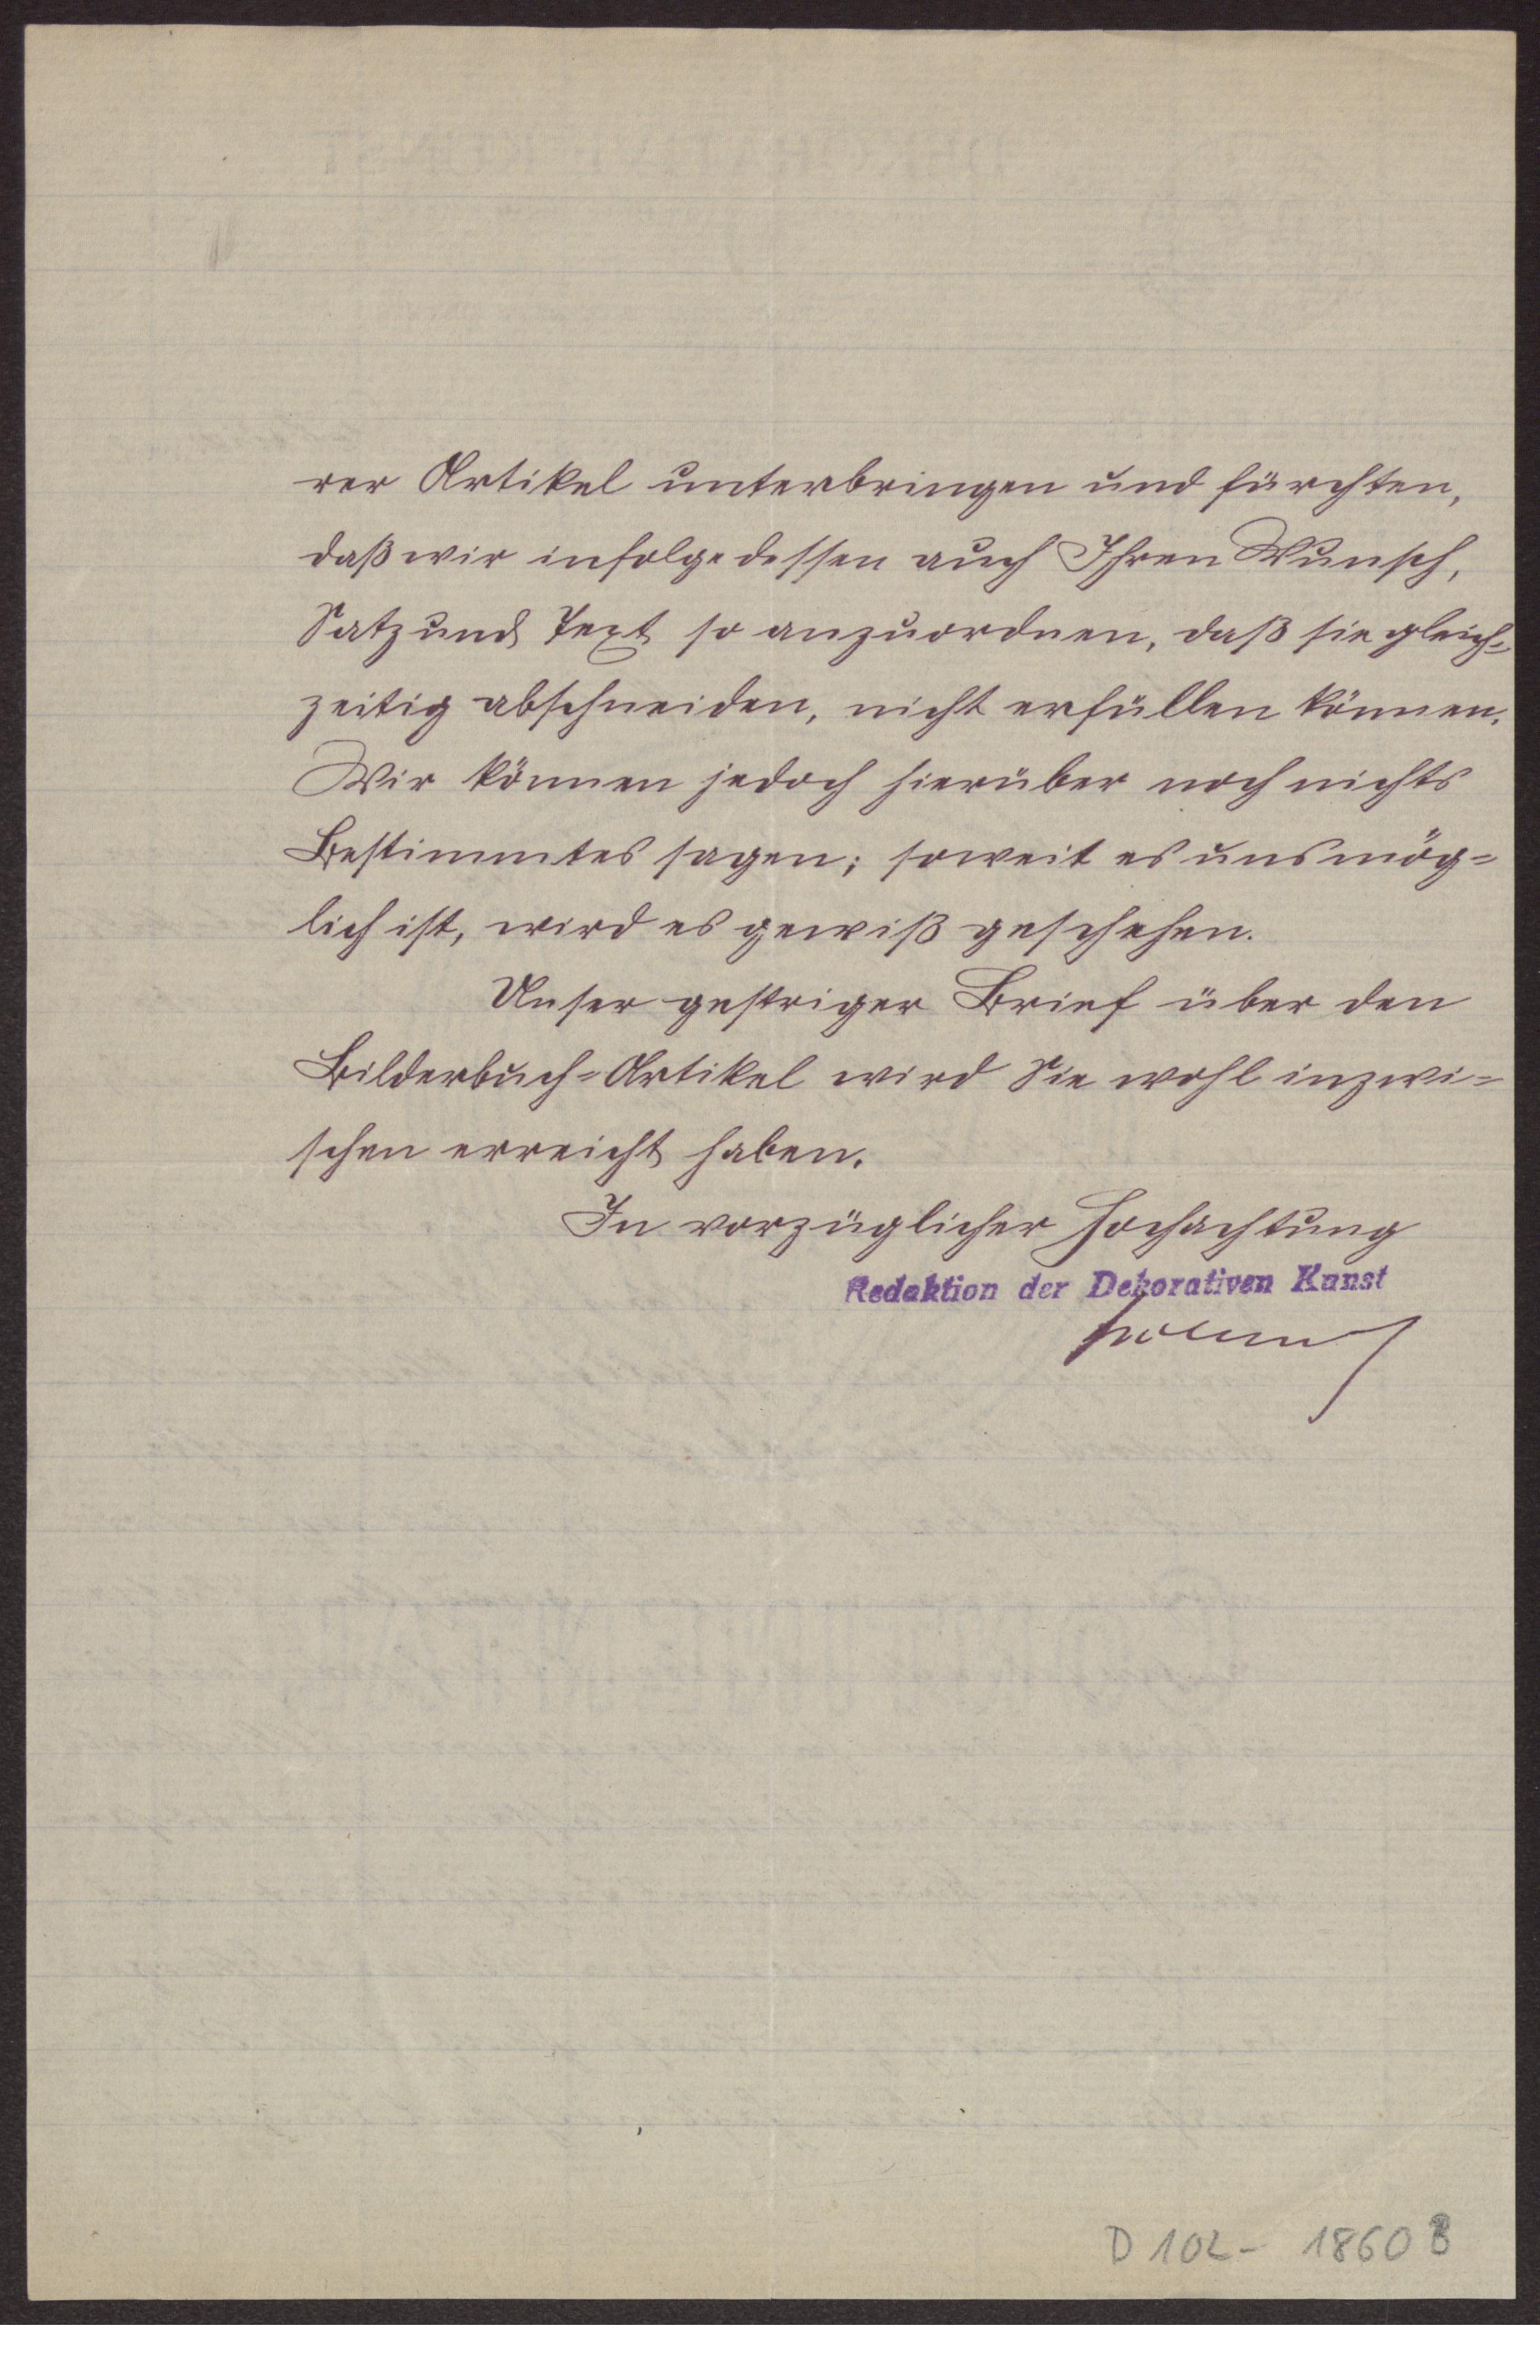 rer Artikel unterbringen und fürchten,
daß wir infolgedessen auch Ihren Wunsch,
Satz und Text so anzuordnen, daß sie gleich-
zeitig abschneiden, nicht erfüllen können.
Wir können jedoch hierüber noch nichts
Bestimmtes sagen; soweit es uns mög-
lich ist, wird es gewiß geschehen.
Unser gestriger Brief über den
Bilderbuch-Artikel wird Sie wohl inzwi-
schen erreicht haben.
In vorzüglicher Hochachtung
Redaktion der Dekorativen Kunst
D 102- 18603